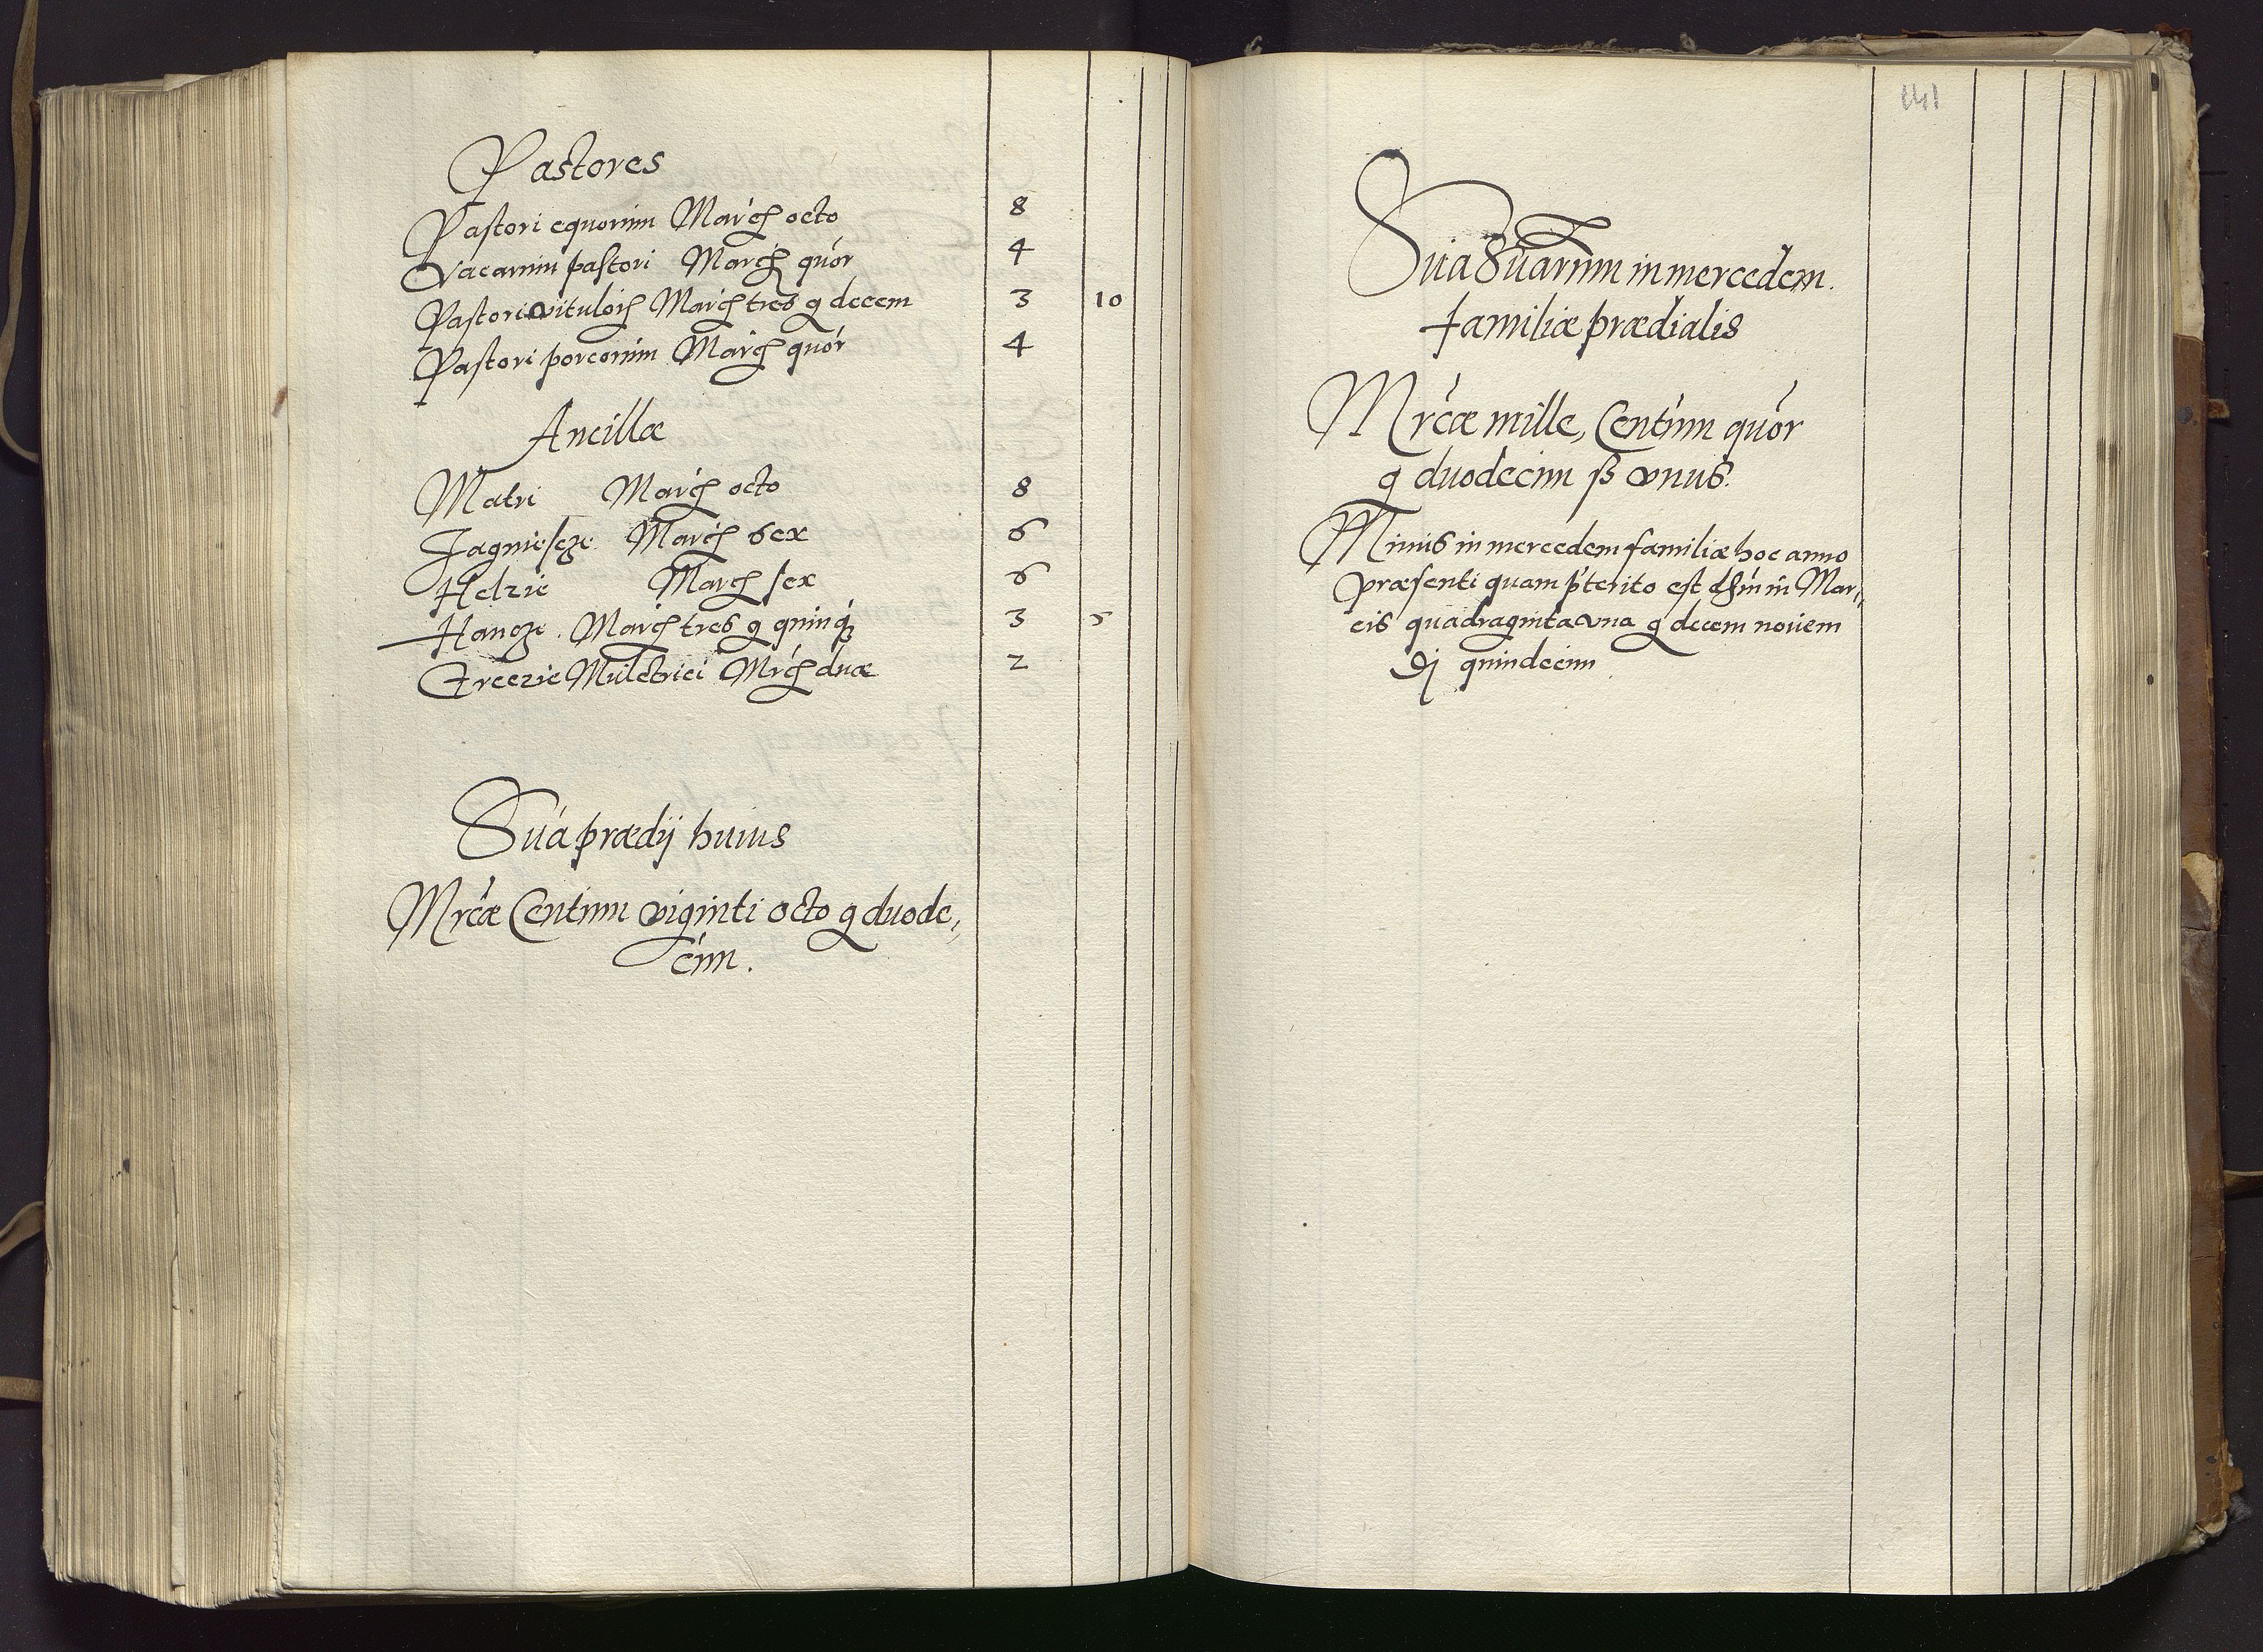 Pastores
Pastori equorum March octo 8
Vacarum pastori March quor 4
Pastori vituloru March tres g decem 3 10
Pastori porcorum March quor 4
Ancillæ
Matri March octo 8
Jagnieſzce March sex 6
Helzie March sex 6
Hancze. March tres g quinq 3 5
Mulctrici Mrch duæ 2
Sua prædij huius
Mrcæ Centum viginti octo g duode,,
cim.
141
Sua Suarum in mercedem.
familiæ prædialis
Mrcæ mille, Centum quor
g duodecim ß vnus.
Minus in mercedem familiæ hoc anno
præsenti quam pterito est in Mar,,
cis quadraginta vna g decem novem
quindecim